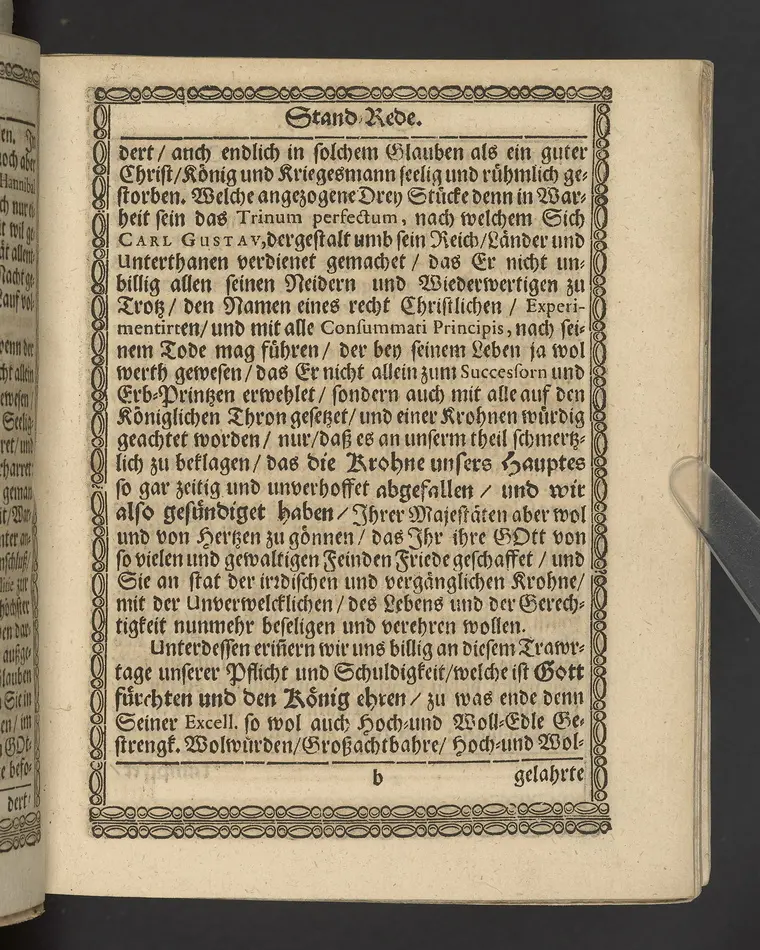 Stand-Rede.
dert / auch endlich in solchem Glauben als ein guter
Christ/König und Kriegesmann seelig und rühmlich ge-
storben. Welche angezogene Drey Stücke denn in War-
heit sein das Trinum perfectum, nach welchem Sich
CARL GUSTAV, dergestalt umb sein Reich/Länder und
Unterthanen verdienet gemachet / das Er nicht un-
billig allen seinen Neidern und Wiederwertigen zu
Trotz / den Namen eines recht Christlichen / Experi-
mentirten/ und mit alle Consummati Principis, nach sei-
nem Tode mag führen / der bey seinem Leben ja wol
werth gewesen / das Er nicht allein zum Successorn und
Erb-Printzen erwehlet / sondern auch mit alle auf den
Königlichen Thron gesetzet / und einer Krohnen würdig
geachtet worden / nur/daß es an unserm theil schmertz-
lich zu beklagen / das die Krohne unsers Hauptes
so gar zeitig und unverhoffet abgefallen / und wir
also gesündiget haben / Ihrer Majestäten aber wol
und von Hertzen zu gönnen / das Ihr ihre GOtt von
so vielen und gewaltigen Feinden Friede geschaffet / und
Sie an stat der irrdischen und vergänglichen Krohne/
mit der Unverwelcklichen / des Lebens und der Gerech-
tigkeit nunmehr beseligen und verehren wollen.
Unterdessen erin̄ern wir uns billig an diesem Trawr-
tage unserer Pflicht und Schuldigkeit/welche ist Gott
fürchten und den König ehren / zu was ende denn
Seiner Excell. so wol auch Hoch-und Woll-Edle Ge-
strengk. Wolwürden/Großachtbahre/ Hoch-und Wol-
b gelahrte